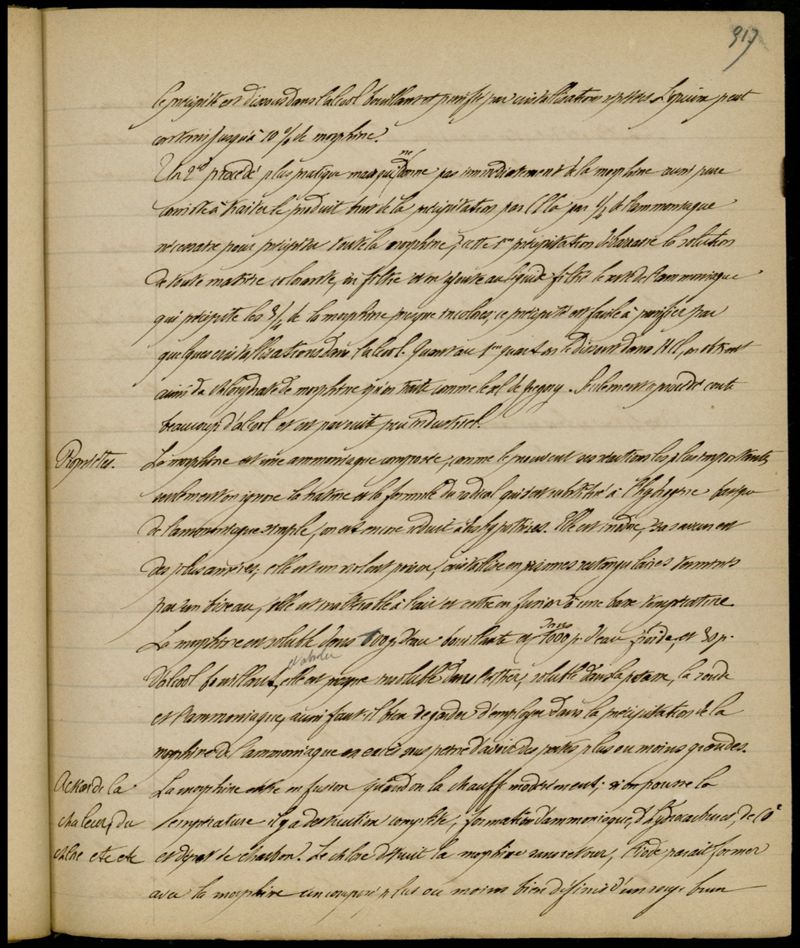 317
Ce précipité est dissous dans l'alcool bouillant et purifié par cristallisations répétées. L'opium peut
contenir jusqu'à 10 % de morphine.
Un 2nd procédé plus pratique mais qui ne donne pas immédiatement de la morphine aussi pure
consiste à traiter le produit de la précipitation par par 1/4 de l'ammoniaque
nécessaire pour précipiter toute la morphine, cette 1re précipitation débarrasse la solution
de toute matière colorante, on filtre et on ajoute au liquide filtré le reste de l'ammoniaque
qui précipite les 3/4 de la morphine presque incolore, ce précipité est facile à purifier par
quelques cristallisations dans l'alcool. Quant au 1er quart on le dissout dans HCl, on obtient
ainsi du chlorhydrate de morphine qu'on traite comme le sel de Grégory. Seulement ce procédé coûte
beaucoup d'alcool et est par suite peu industriel.
Propriétés. La morphine est une ammoniaque composée, comme le prouvent ses réactions les plus importantes,
seulement on ignore la nature et la formule du radical qui s'est substitué à l'hydrogène
de l'ammoniaque simple, on est encore réduit à des hypothèses. Elle est inodore, sa saveur est
des plus amères, elle est un violent poison, cristallise en prismes rectangulaires terminés
par un biseau, elle est inaltérable à l'air et entre en fusion à une basse température.
La morphine est soluble dans 100 p. d'eau bouillante et dans 1000 p. d'eau froide, et 30 p.
d'alcool bouillant, elle est presque insoluble dans l'éther, soluble dans la potasse, la soude
et l'ammoniaque, aussi faut-il bien se garder d'employer dans la précipitation de la
morphine de l'ammoniaque en excès sous peine d'avoir des pertes plus ou moins grandes.
Action de la
chaleur, du
chlore etc etc
La morphine entre en fusion quand on la chauffe modérément; si on pousse la
température il y a destruction complète, formation d'ammoniaque, d'hydrocarbures, de CO2
et dépôt de charbon. Le chlore détruit la morphine sans retour, l'iode paraît former
avec la morphine un composé plus ou moins bien défini d'un rouge brun